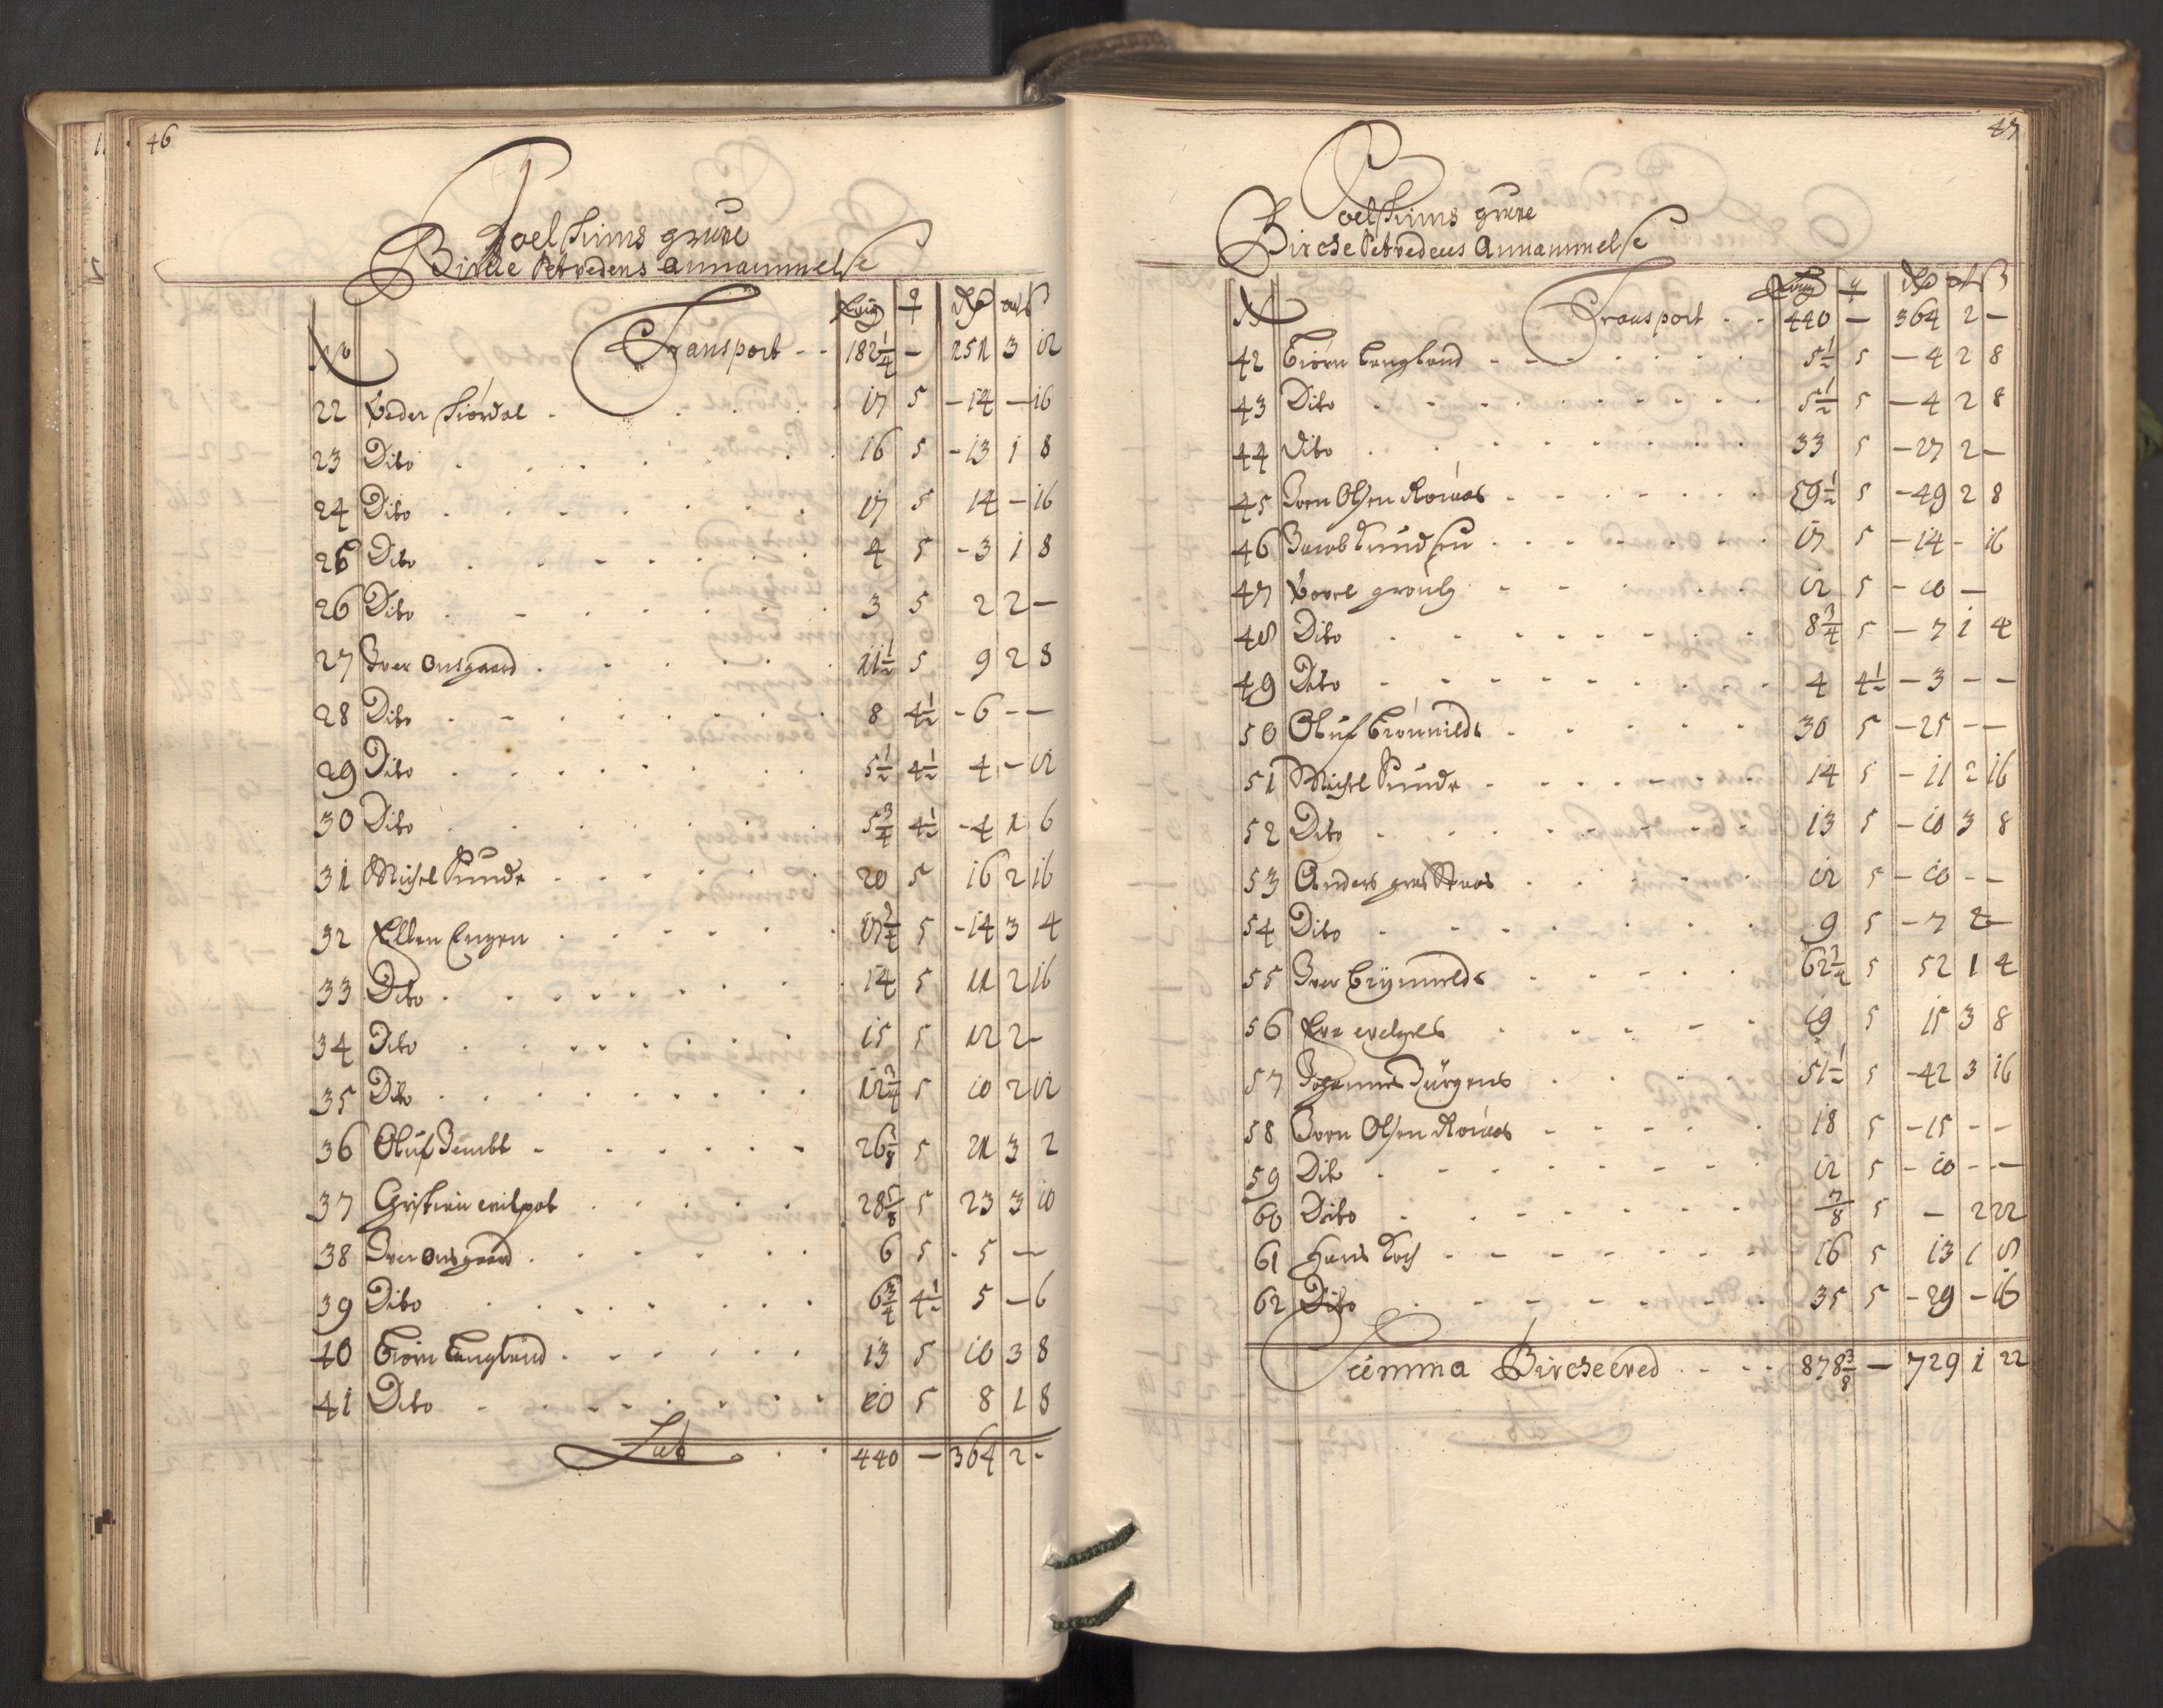 46
Poelsthims grube
Birche Setvedens Annammelse
No Favng q Rdr ort ß
Transport - - 182 1/4 — 151 3 12
22 Peder Hiordal 17 5 - 14 — 16
23 Dito 16 5 - 13 1 8
24 Dito 17 5 14 — 16
25 Dito 4 5 - 3 1 8
26 Dito 3 5 2 2 —
27 Iver Onsgaard 11 1/2 5 9 2 8
28 Dito 8 4 1/2 - 6 — —
29 Dito 5 1/2 4 1/2 4 — 12
30 Dito 5 3/4 4 1/2 - 4 1 6
31 Michel Sunde 20 5 16 2 16
32 Ellen Engen 17 3/4 5 - 14 3 4
33 Dito 14 5 11 2 16
34 Dito 15 5 12 2 -
35 Dito 12 3/4 5 10 2 12
36 Oluf Jembt 26 1/8 5 21 3 2
37 28 5/8 5 23 3 10
38 Iver Onsgaard 6 5 - 5 —
39 Dito 6 3/4 4 1/2 5 — 6
40 Biörn Langland 13 5 10 3 8
41 Dito 10 5 8 1 8
Lat 440 — 364 2 -
47
Poelsthims grube
Birche Setvedens Annammelse
No Favng q Rdr ort ß
Transport - - 440 — 364 2 —
42 Biörn Langland 5 1/2 5 — 4 2 8
43 Dito 5 1/2 5 — 4 2 8
44 Dito 33 5 — 27 2 —
45 Iven Olsen Röraas 59 1/2 5 - 49 2 8
46 Jacob Knudsen 17 5 - 14 - 16
47 Povel 12 5 - 10 —
48 Dito 8 3/4 5 — 7 1 4
49 Dito 4 4 1/2 — 3 — —
50 Oluf Brönnildt 30 5 — 25 — —
51 Michel Sunde 14 5 - 11 2 16
52 Dito 13 5 - 10 3 8
53 Anders 12 5 - 10 - -
54 Dito 9 5 - 7 2 —
55 Iver Brynnildt 62 3/4 5 52 1 4
56 19 5 15 3 8
57 Johannes Jürgens 51 1/2 5 - 42 3 16
58 Iven Olsen Röraas 18 5 - 15 - -
59 Dito 12 5 - 10 - —
60 Dito 7/8 5 — 2 22
61 Hans Koch 16 5 13 1 8
62 Dito 35 5 - 29 — 16
Summa Bircheved 878 3/8 — 729 1 22